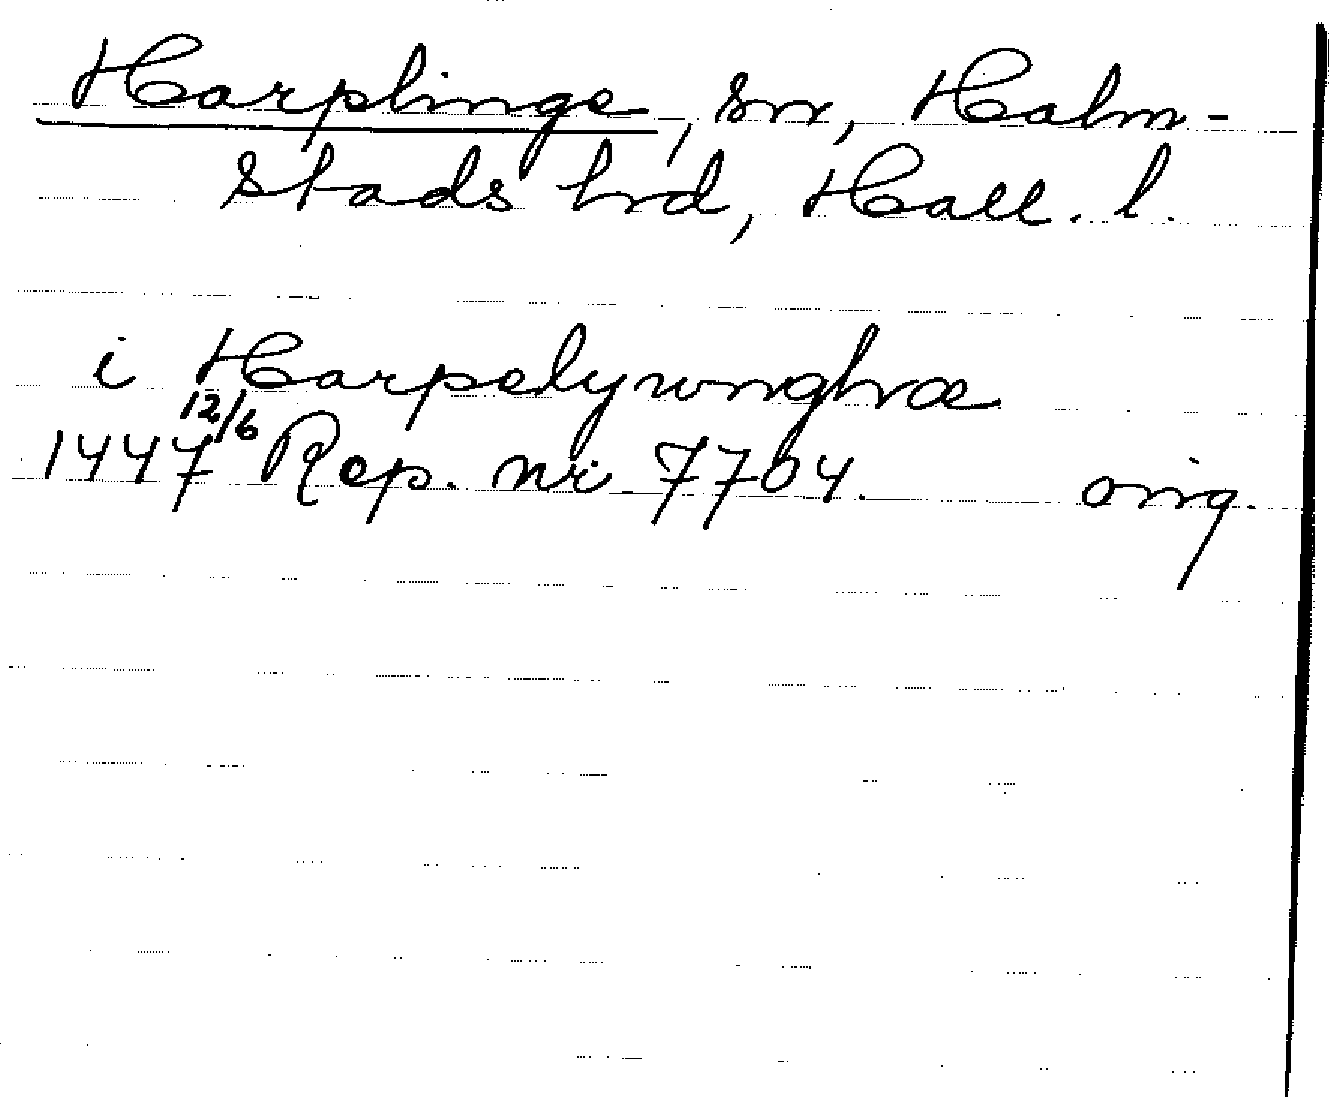 Harplinge, sn, Halm-
stads hrd, Hall. l.
i Harpelywnghæ
1447 12/6 Rep. nr 7704. orig.